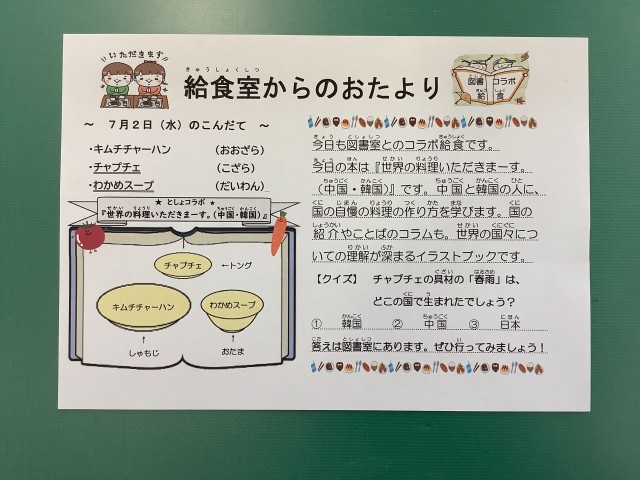 いただきます
給食室からのおたより
図書 コラボ
給食
～ ７月２日（水）のこんだて ～
・キムチチャーハン （おおざら）
・チャプチェ （こざら）
・わかめスープ （だいわん）
★ としょコラボ ★
『世界の料理いただきまーす。（中国・韓国）』
チャプチェ ←トング
キムチチャーハン わかめスープ
↑ ↑
しゃもじ おたま
今日も図書室とのコラボ給食です。
今日の本は『世界の料理いただきまーす。
（中国・韓国）』です。中国と韓国の人に、
国の自慢の料理の作り方を学びます。国の
紹介やことばのコラムも。世界の国々につ
いての理解が深まるイラストブックです。
【クイズ】 チャプチェの具材の「春雨」は、
どこの国で生まれたでしょう？
① 韓国 ② 中国 ③ 日本
答えは図書室にあります。ぜひ行ってみましょう！